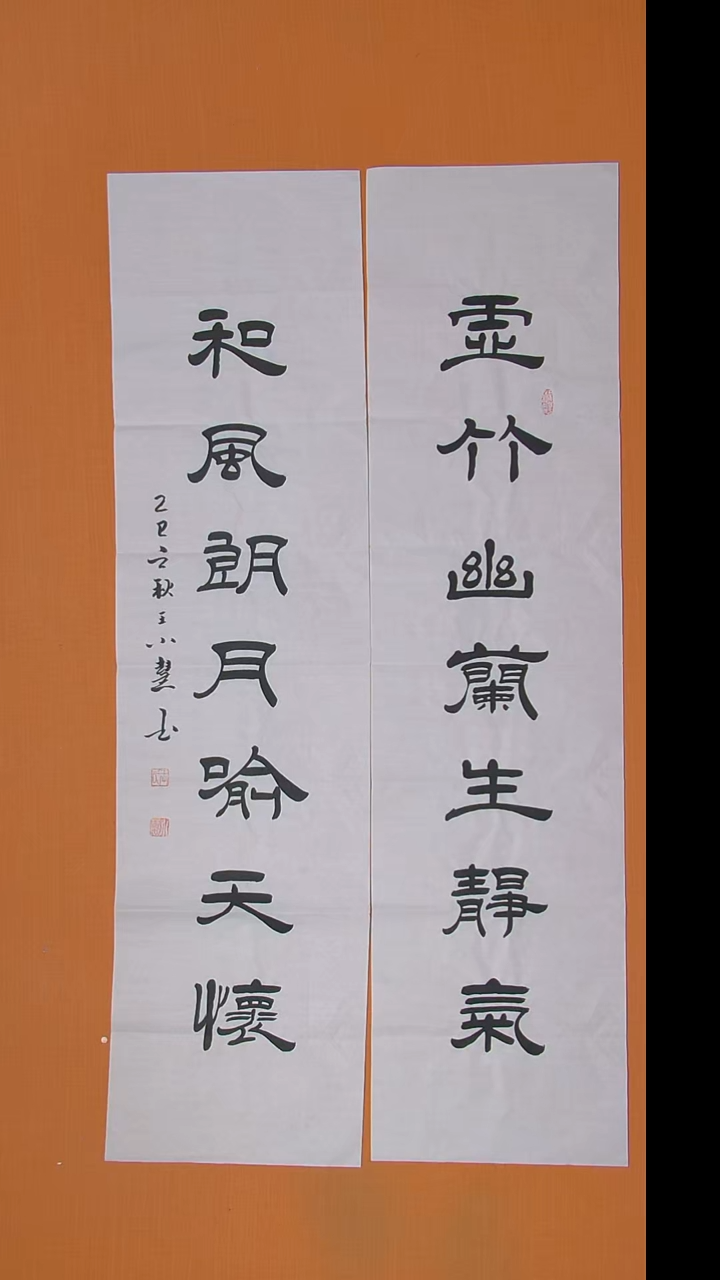 虛竹幽蘭生靜氣
和風朗月喻天懷
乙巳立秋王小慧書